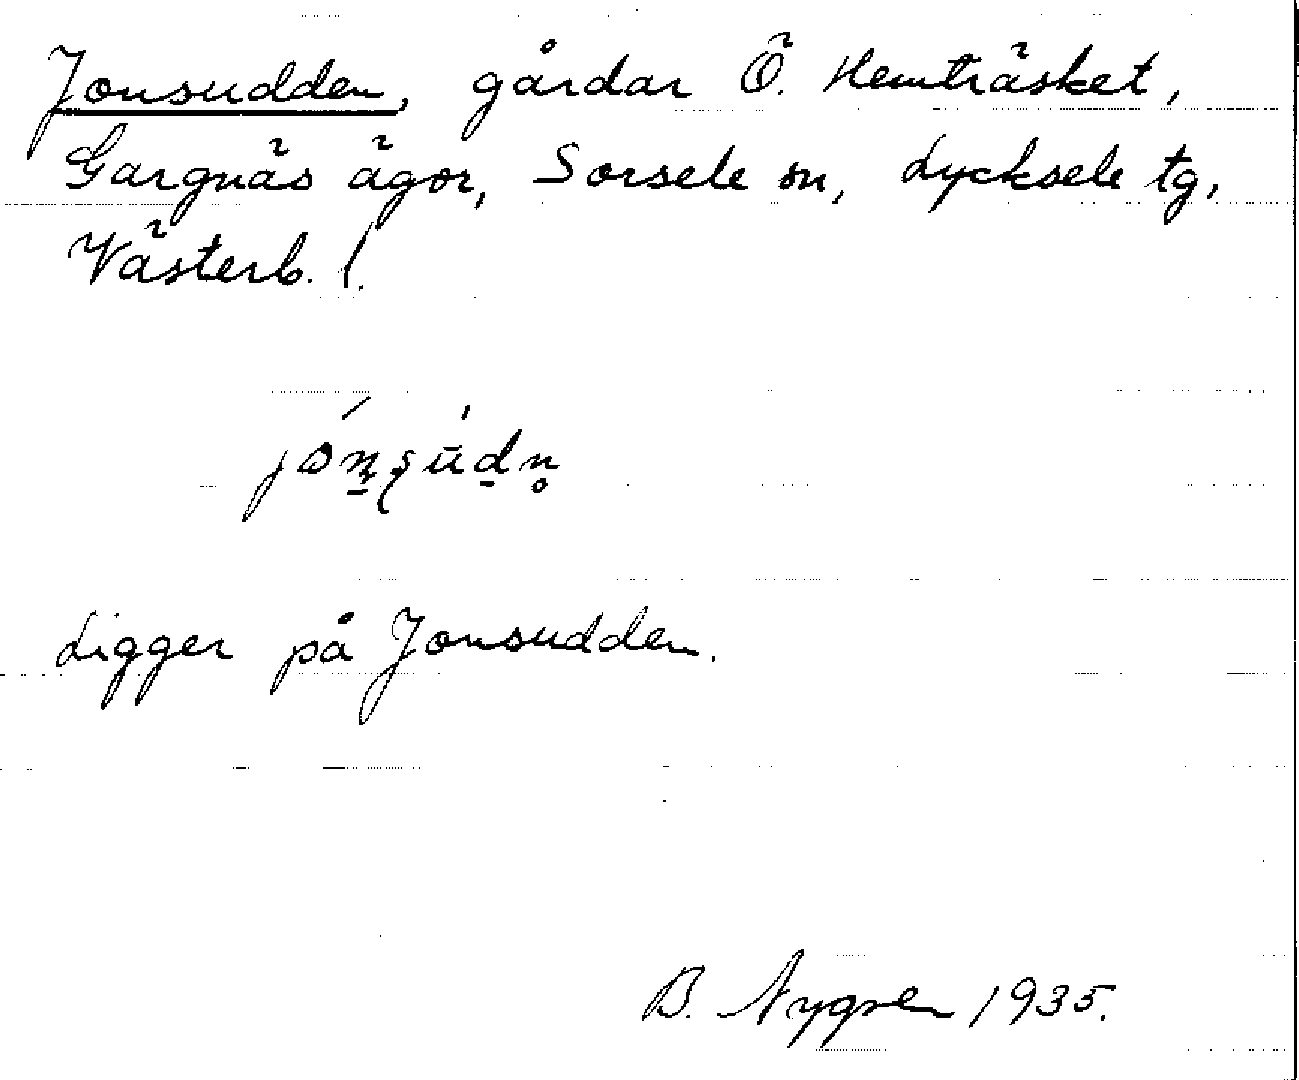 Jonsudden, gårdar Ö. Hemträsket,
Gargnäs ägor, Sorsele sn, Lycksele tg,
Västerb. l.
Ligger på Jonsudden.
B. Nygren 1935.